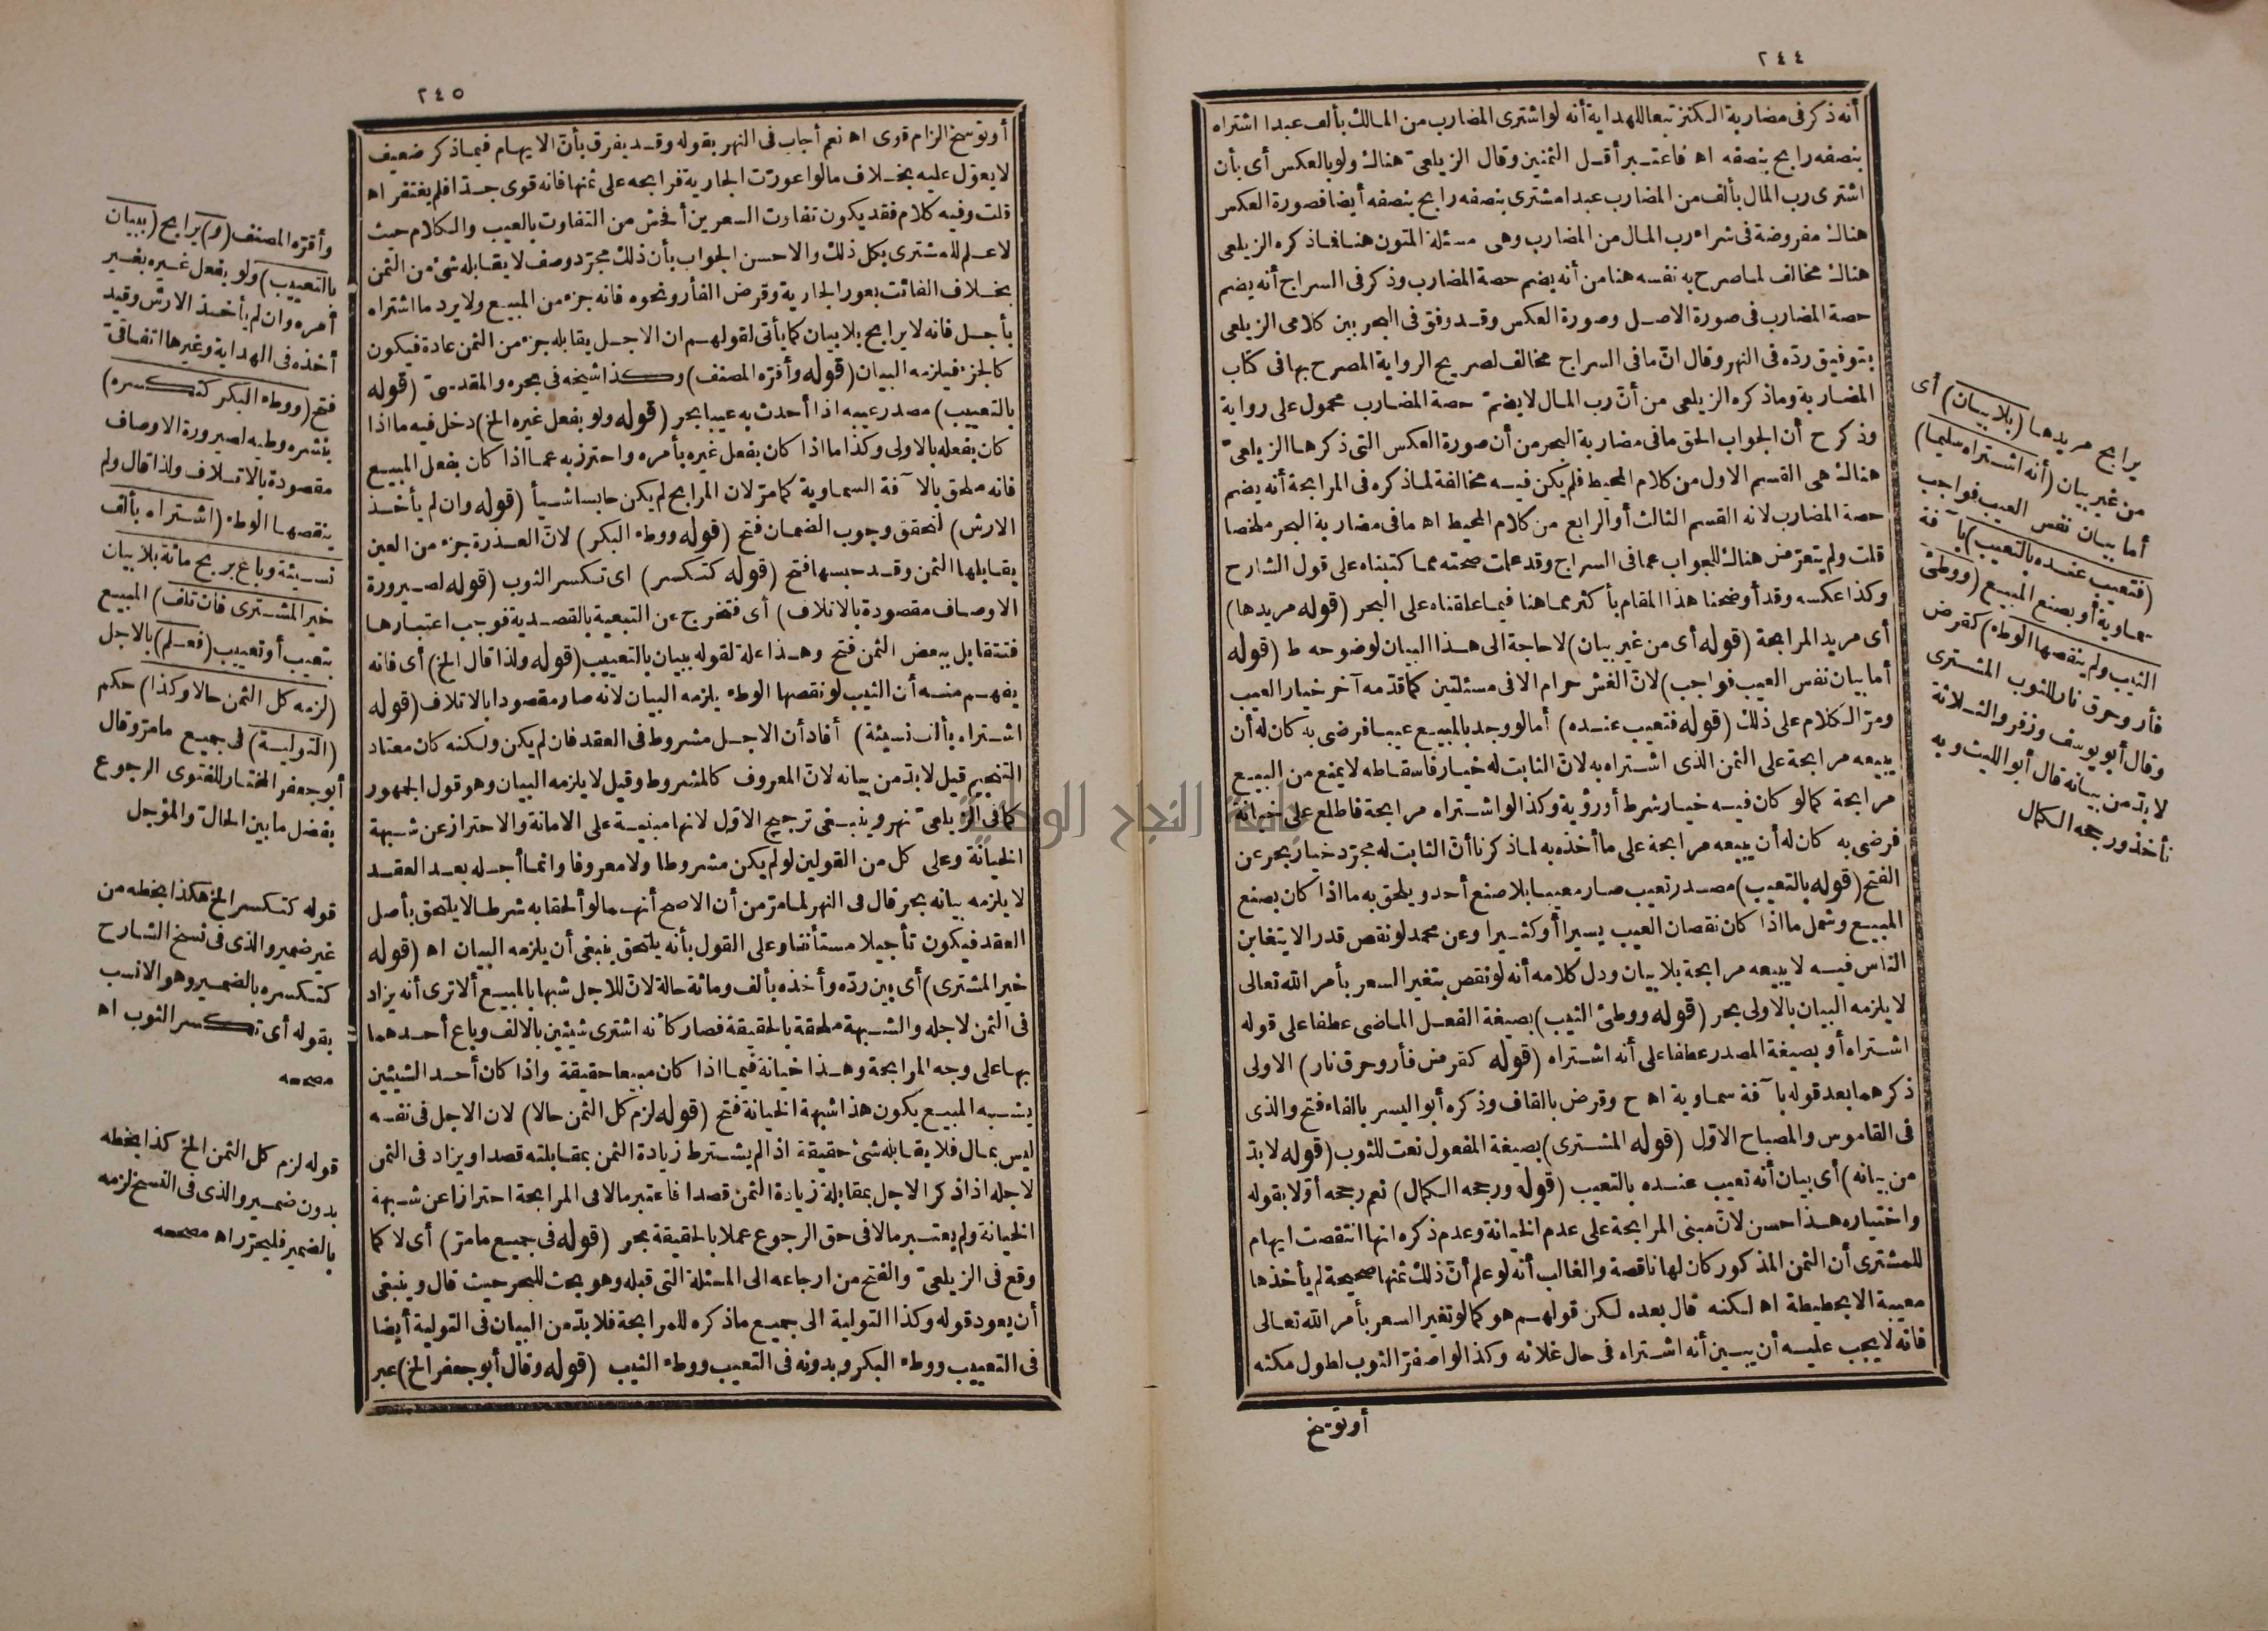 ٢٤٤
أنه ذكر فى مضاربة الكنز تبعا للهداية أنه لو اشترى المضارب من المالك بألف عبدا اشتراه
بنصفه رابح بنصفه اه فاعتبر أقل الثمنين وقال الزيلعىّ هناك ولو بالعكس أى بأن
اشترى رب المال بألف من المضارب عبدا مشترى بنصفه رابح بنصفه أيضا فصورة العكس
هناك مفروضة فى شراء رب المال من المضارب وهى مسئلة المتون هنا فما ذكره الزيلعى
هناك مخالف لما صرح به نفسه هنا من أنه يضم حصة المضارب وذكر فى السراج أنه يضم
حصة المضارب فى صورة الاصل وصورة العكس وقد وفق فى البحر بين كلامى الزيلعى
بتوفيق ردّه فى النهر وقال انّ ما فى السراج مخالف لصريح الرواية المصرح بها فى كتاب
المضاربة وما ذكره الزيلعى من أنّ رب المال لا يضمّ حصة المضارب محمول على رواية
وذكر ح أن الجواب الحق ما فى مضاربة البحر من أن صورة العكس التى ذكرها الزيلعىّ
هناك هى القسم الاول من كلام المحيط فلم يكن فيه مخالفة لما ذكره فى المرابحة أنه يضم
حصة المضارب لانه القسم الثالث أو الرابع من كلام المحيط اه ما فى مضاربة البحر ملخصا
قلت ولم يتعرّض هناك للجواب عما فى السراج وقد علمت صحته مما كتبناه على قول الشارح
وكذا عكسه وقد أوضحنا هذا المقام بأكثر مما هنا فيما علقناه على البحر (قوله مريدها)
أى مريد المرابحة (قوله أى من غير بيان) لا حاجة الى هذا البيان لوضوحه ط (قوله
أما بيان نفس العيب فواجب) لانّ الغش حرام الا فى مسئلتين كما قدّمه آخر خيار العيب
ومرّ الكلام على ذلك (قوله فتعيب عنده) أما لو وجد بالمبيع عيبا فرضى به كان له أن
يبيعه مرابحة على الثمن الذى اشتراه به لانّ الثابت له خيار فاسقاطه لا يمنع من البيع
مرابحة كما لو كان فيه خيار شرط أو رؤية وكذا لو اشتراه مرابحة فاطلع على خيانة
فرضى به كان له أن يبيعه مرابحة على ما أخذه به لما ذكرنا أنّ الثابت له مجرّد خيار بحر عن
الفتح (قوله بالتعيب) مصدر تعيب صار معيبا بلا صنع أحد ويلحق به ما اذا كان بصنع
المبيع وشمل ما اذا كان نقصان العيب يسيرا أو كثيرا وعن محمد لو نقص قدر الا يتغابن
الناس فيه لا يبيعه مرابحة بلا بيان ودل كلامه أنه لو نقص بتغير السعر بأمر الله تعالى
لا يلزمه البيان بالاولى بحر (قوله ووطئ الثيب) بصيغة الفعل الماضى عطفا على قوله
اشتراه أو بصيغة المصدر عطفا على أنه اشتراه (قوله كقرض فأر وحرق نار) الاولى
ذكرهما بعد قوله بآفة سماوية اه ح وقرض بالقاف وذكره أبو اليسر بالفاء فتح والذى
فى القاموس والمصباح الاوّل (قوله المشترى) بصيغة المفعول نعت للثوب (قوله لا بدّ
من بيانه) أى بيان أنه تعيب عنده بالتعيب (قوله ورجحه الكمال) نعم رجحه أوّلا بقوله
واختياره هذا حسن لانّ مبنى المرابحة على عدم الخيانة وعدم ذكره انها انتقصت ايهام
للمشترى أن الثمن المذكور كان لها ناقصة والغالب أنه لو علم أنّ ذلك ثمنها صحيحة لم يأخذها
معيبة الا بحطيطة اه لكنه قال بعده لكن قولهم هو كما لو تغير السعر بأمر الله تعالى
فانه لا يجب عليه أن يبين أنه اشتراه فى حال غلائه وكذا لو اصفرّ الثوب لطول مكثه
أو توسخ
يرابح مريدها (بلا بيان) أى
من غير بيان (أنه اشتراه سليما)
أما بيان نفس العيب فواجب
(فتعيب عنده بالتعيب) بآفة
سماوية أو بصنع المبيع (ووطئ
الثيب ولم ينقصها الوطء) كقرض
فأر وحرق نار للثوب المشترى
وقال أبو يوسف وزفر والثلاثة
لا بدّ من بيانه قال أبو الليث وبه
نأخذ ورجحه الكمال
٢٤٥
أو توسخ الزام قوى اه نعم أجاب فى النهر بقوله وقد يفرق بأنّ الايهام فيما ذكر ضعيف
لا يعوّل عليه بخلاف ما لو اعورّت الجارية فرابحه على ثمنها فانه قوى جدّا فلم يغتفر اه
قلت وفيه كلام فقد يكون تفاوت السعرين أفحش من التفاوت بالعيب والكلام حيث
لا علم للمشترى بكل ذلك والاحسن الجواب بأن ذلك مجرّد وصف لا يقابله شئ من الثمن
بخلاف الفائت بعور الجارية وقرض الفأر ونحوه فانه جزء من المبيع ولا يرد ما اشتراه
بأجل فانه لا يرابح بلا بيان كما يأتى لقولهم ان الاجل يقابله جزء من الثمن عادة فيكون
كالجزء فيلزمه البيان (قوله وأقره المصنف) وكذا شيخه فى بحره والمقدسىّ (قوله
بالتعييب) مصدر عيبه اذا أحدث به عيبا بحر (قوله ولو بفعل غيره الخ) دخل فيه ما اذا
كان بفعله بالاولى وكذا ما اذا كان بفعل غيره بأمره واحترز به عما اذا كان بفعل المبيع
فانه ملحق بالآفة السماوية كما مرّ لان المرابح لم يكن حابسا شيأ (قوله وان لم يأخذ
الارش) لتحقق وجوب الضمان فتح (قوله ووطء البكر) لانّ العذرة جزء من العين
يقابلها الثمن وقد حبسها فتح (قوله كتكسر) اى تكسر الثوب (قوله لصيرورة
الاوصاف مقصودة بالاتلاف) أى فتخرج عن التبعية بالقصدية فوجب اعتبارها
فتتقابل ببعض الثمن فتح وهذا علة لقوله ببيان بالتعييب (قوله ولذا قال الخ) أى فانه
يفهم منه أن الثيب لو نقصها الوطء يلزمه البيان لانه صار مقصودا بالاتلاف (قوله
اشتراه بألف نسيئة) أفاد أن الاجل مشروط فى العقد فان لم يكن ولكنه كان معتاد
التنجيم قيل لا بدّ من بيانه لانّ المعروف كالمشروط وقيل لا يلزمه البيان وهو قول الجمهور
كما فى الزيلعىّ نهر وينبغى ترجيح الاوّل لانها مبنية على الامانة والاحتراز عن شبهة
الخيانة وعلى كل من القولين لو لم يكن مشروطا ولا معروفا وانما أجله بعد العقد
لا يلزمه بيانه بحر قال فى النهر لما مرّ من أن الاصح أنهما لو ألحقا به شرطا لا يلتحق بأصل
العقد فيكون تأجيلا مستأنفا وعلى القول بأنه يلتحق ينبغى أن يلزمه البيان اه (قوله
خير المشترى) أى بين ردّه وأخذه بألف ومائة حالة لانّ للاجل شبها بالمبيع ألا ترى أنه يزاد
فى الثمن لاجله والشبهة ملحقة بالحقيقة فصار كأنه اشترى شيئين بالالف وباع أحدهما
بها على وجه المرابحة وهذا خيانة فيما اذا كان مبيعا حقيقة واذا كان أحد الشيئين
يشبه المبيع يكون هذا شبهة الخيانة فتح (قوله لزم كل الثمن حالا) لان الاجل فى نفسه
ليس بمال فلا يقابله شئ حقيقة اذا لم يشترط زيادة الثمن بمقابلته قصدا ويزاد فى الثمن
لاجله اذا ذكر الاجل بمقابلة زيادة الثمن قصدا فاعتبر مالا فى المرابحة احترازا عن شبهة
الخيانة ولم يعتبر مالا فى حق الرجوع عملا بالحقيقة بحر (قوله فى جميع ما مرّ) أى لا كما
وقع فى الزيلعىّ والفتح من ارجاعه الى المسئلة التى قبله وهو بحث للبحر حيث قال وينبغى
أن يعود قوله وكذا التولية الى جميع ما ذكره للمرابحة فلا بدّ من البيان فى التولية أيضا
فى التعييب ووطء البكر وبدونه فى التعيب ووطء الثيب (قوله وقال أبو جعفر الخ) عبر
وأقرّه المصنف (و) يرابح (ببيان
بالتعييب) ولو بفعل غيره بغير
أمره وان لم يأخذ الارش وقيد
أخذه فى الهداية وغيرها اتفاقىّ
فتح (ووطء البكر كتكسره)
بنشره وطيه لصيرورة الاوصاف
مقصودة بالاتلاف ولذا قال ولم
ينقصها الوطء (اشتراه بألف
نسيئة وباع بربح مائة بلا بيان
خير المشترى فان تلف) المبيع
بتعيب أو تعييب (فعلم) بالاجل
(لزمه كل الثمن حالا وكذا) حكم
(التولية) فى جميع ما مرّ وقال
أبو جعفر المختار للفتوى الرجوع
بفضل ما بين الحالّ والمؤجل
قوله كتكسر الخ هكذا بخطه من
غير ضمير والذى فى نسخ الشارح
كتكسره بالضمير وهو الانسب
بقوله أى تكسر الثوب اه
مصححه
قوله لزم كل الثمن الخ كذا بخطه
بدون ضمير والذى فى النسخ لزمه
بالضمير فليحرّر اه مصححه
جامعة النجاح الوطنية